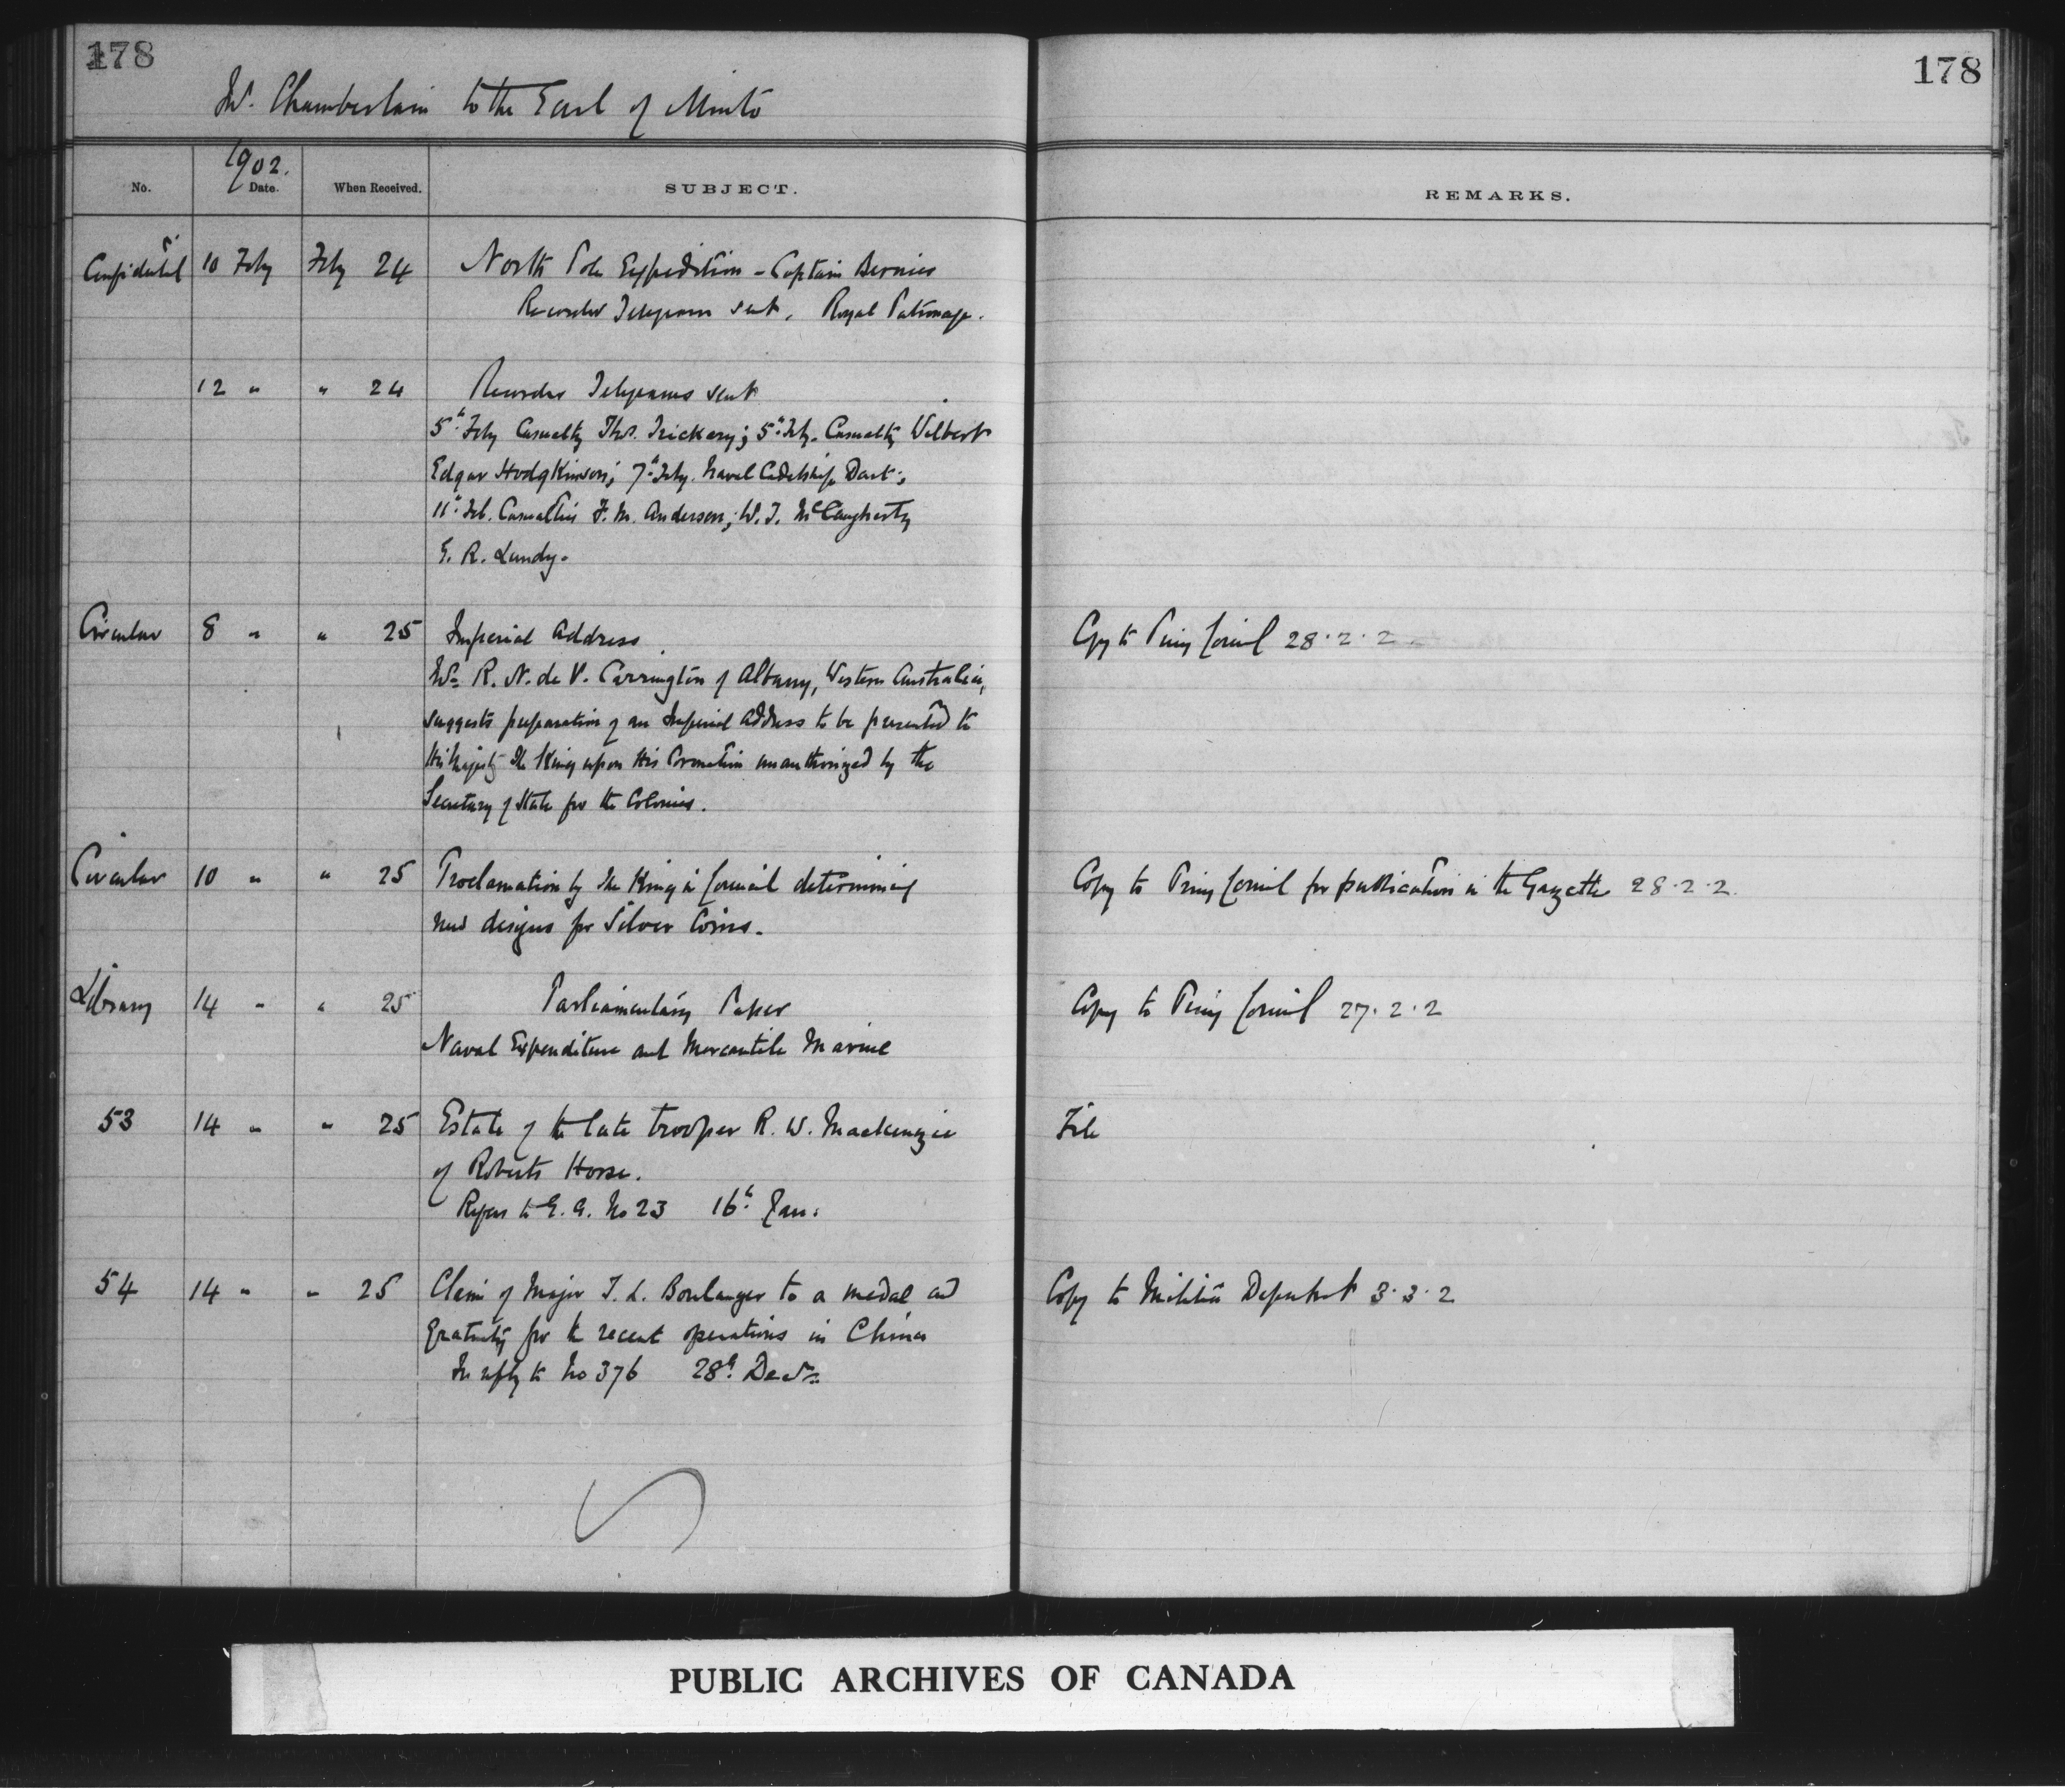 178
178
Mr. Chamberlain to the Earl of Minto
1902.
No. Date. When Received. SUBJECT. REMARKS.
Confidential 10 Feby Feby 24 North Pole Expedition - Captain Bernier
Recorder Telegram sent. Royal Patronage.
12 " " 24 Recorder Telegrams sent
5th Feby Casualty Thos. Trickery; 5th Feby. Casualty Wilbert
Edgar Hodgkinson; 7th Feby. Naval Cadetship Dart:;
11th Feb. Casualties F. M. Anderson; W. J. McCaugherty
E. R. Lundy.
Circular 8 " " 25 Imperial Address. Copy to Privy Council 28.2.2
Mr. R. N. de V. Carrington of Albany, Western Australia,
suggests preparation of an Imperial Address to be presented to
His Majesty The King upon His Coronation unauthorized by the
Secretary of State for the Colonies.
Circular 10 " " 25 Proclamation by The King in Council determining Copy to Privy Council for publication in the Gazette 28.2.2.
new designs for Silver Coins.
Library 14 " " 25 Parliamentary Paper Copy to Privy Council 27.2.2
Naval Expenditure and Mercantile Marine
53 14 " " 25 Estate of the late trooper R. W. Mackenzie File
of Roberts Horse.
Refers to G. G. No 23 16th Jan:
54 14 " " 25 Claim of Major J. L. Boulanger to a medal and Copy to Militia Department 3.3.2
gratuity for the recent operations in China
In reply to No 376 28th Decr
PUBLIC ARCHIVES OF CANADA